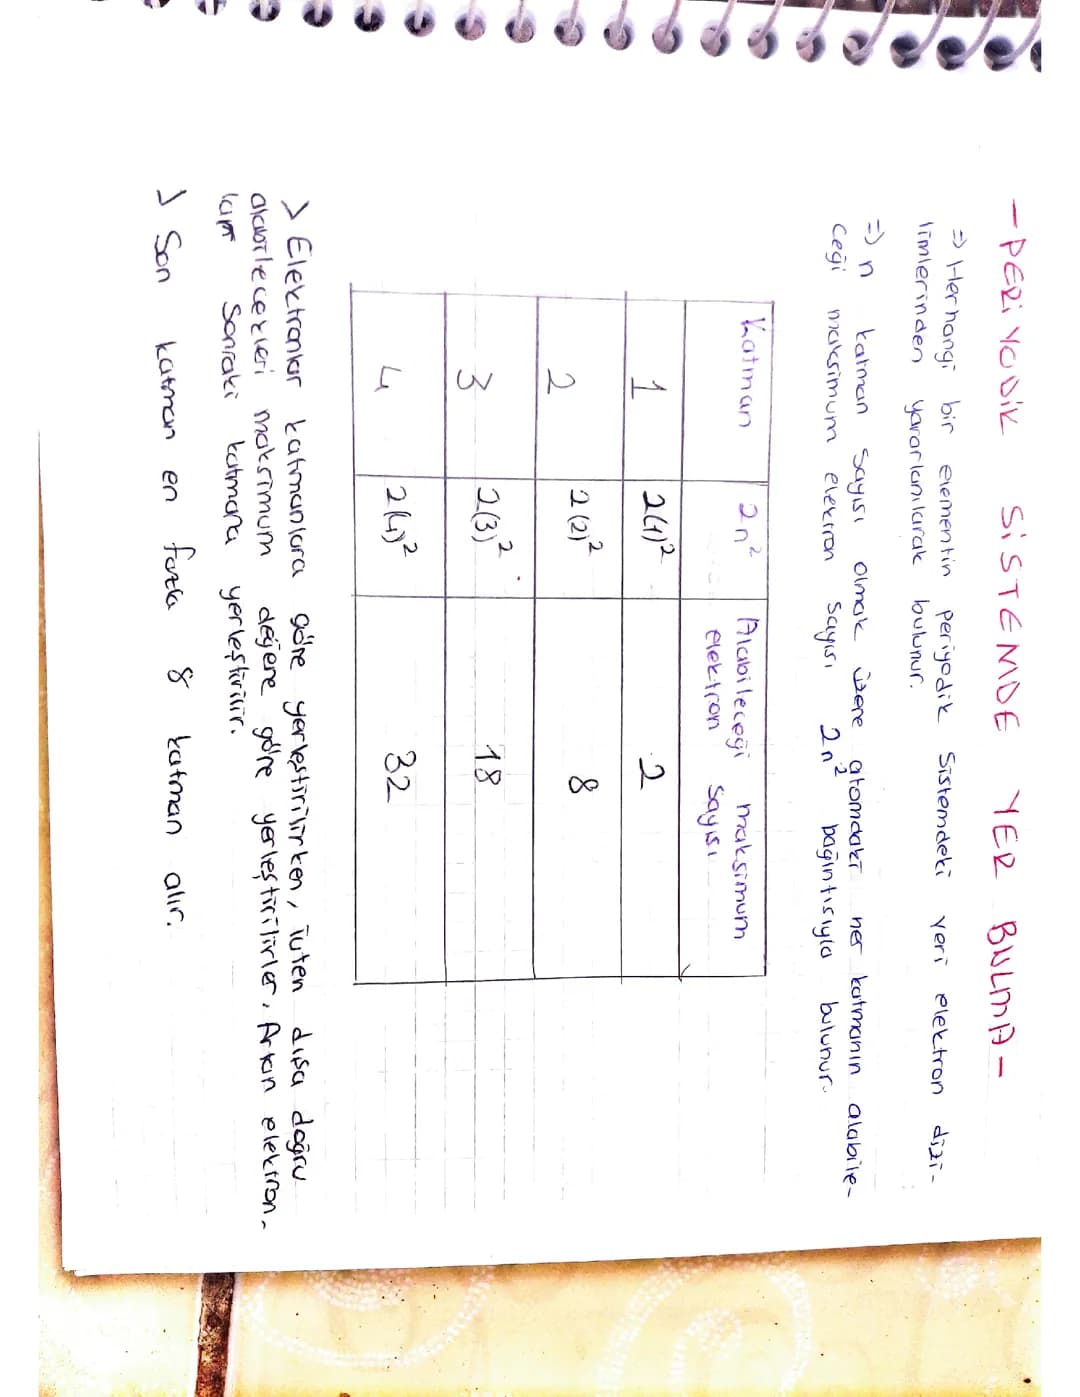 -PERİYODİK SİSTEMDE YER BULMA-
=> Herhangi bir elementin periyodik sistemdeki yeri elektron dizi-
limlerinden yararlanılarak bulunur.
=> n katman sayısı olmak üzere atomdaki her katmanın alabile-
ceği maksimum elektron sayısı 2n² bağıntısıyla bulunur.
Katman 2n² Alabileceği maksimum
elektron sayısı
1 2(1)² 2
2 2(2)² 8
3 2(3)² 18
4 2(4)² 32
> Elektronlar katmanlara göre yerleştirilirken, içten dışa doğru
alabilecekleri maksimum değere göre yerleştirilirler. Artan elektron-
lar sonraki katmana yerleştirilir.
> Son katman en fazla 8 katman alır.